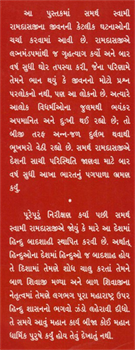 આ પુસ્તકમાં સમર્થ સ્વામી
રામદાસજીના જીવનની કેટલીક ઘટનાઓની
ચર્ચા કરવામાં આવી છે. રામદાસજીએ
લગ્નમંડપમાંથી જ ગૃહત્યાગ કર્યો અને બાર
વર્ષ સુધી ઘોર તપસ્યા કરી, જેના પરિણામે
તેમને ભાન થયું કે જીવનનો મોટો પ્રશ્ન
પરલોકનો નથી, પણ આ લોકનો છે. અત્યારે
આલોક વિધર્મીઓના જુલમથી ભયંકર
અપમાનિત અને દુઃખી થઈ રહ્યો છે; તો
બીજી તરફ અન્ન-જળ દુર્લભ થવાથી
ભૂખમરો વેઠી રહ્યો છે. સમર્થ રામદાસજીએ
દેશની સાચી પરિસ્થિતિ જાણવા માટે બાર
વર્ષ સુધી આખા ભારતનું પગપાળા ભ્રમણ
કર્યું.
પૂરેપૂરું નિરીક્ષણ કર્યા પછી સમર્થ
સ્વામી રામદાસજીએ જોયું કે મારે આ દેશમાં
હિન્દુ બાદશાહી સ્થાપિત કરવી છે. અર્થાત્
હિન્દુઓના દેશમાં હિન્દુઓ જ બાદશાહ હોય
તે દિશામાં તેમણે શોધ ચાલુ કરતાં તેમને
બાળ શિવાજી મળ્યા અને બાળ શિવાજીના
નેતૃત્વમાં તેમણે લગભગ પૂરા મહારાષ્ટ્ર ઉપર
હિન્દુ શાસનનો ભગવો ઝંડો લહેરાવી દીધો.
તે સમયે આવું મહાન કાર્ય બીજા કોઈ મહાન
ધાર્મિક પુરુષે કર્યું હોય તેવું દેખાતું નથી.